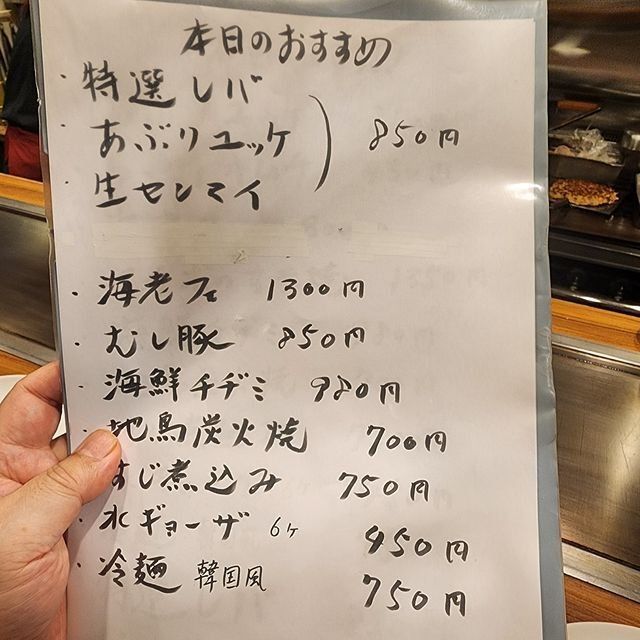 本日のおすすめ
・特選レバ
・あぶりユッケ ) 850円
・生センマイ
・海老フェ 1300円
・むし豚 850円
・海鮮チヂミ 980円
地鳥炭火焼 700円
すじ煮込み 750円
・水ギョーザ 6ヶ 450円
・冷麺 韓国風 750円